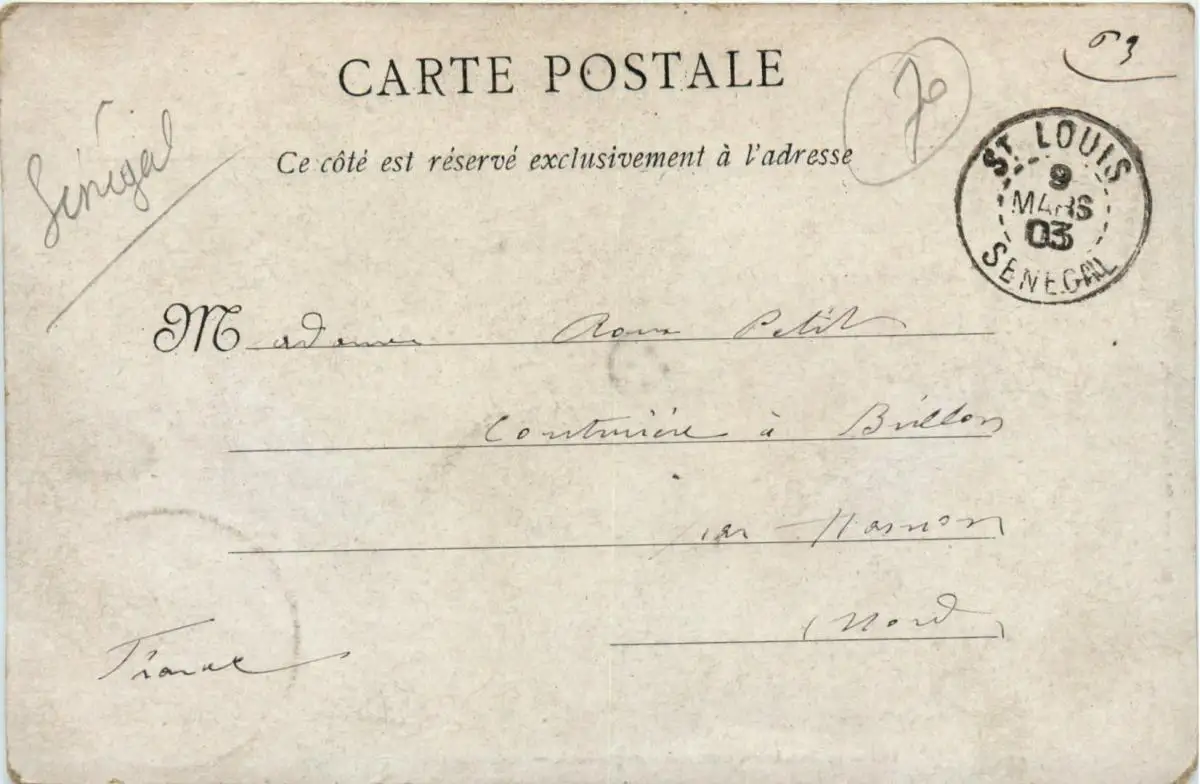 CARTE POSTALE
Ce côté est réservé exclusivement à l'adresse
Sénégal
63
ST LOUIS
9
MARS
03
SENEGAL
Madame Petit
Couturière à Brillon
par Hasnon
(Nord)
France